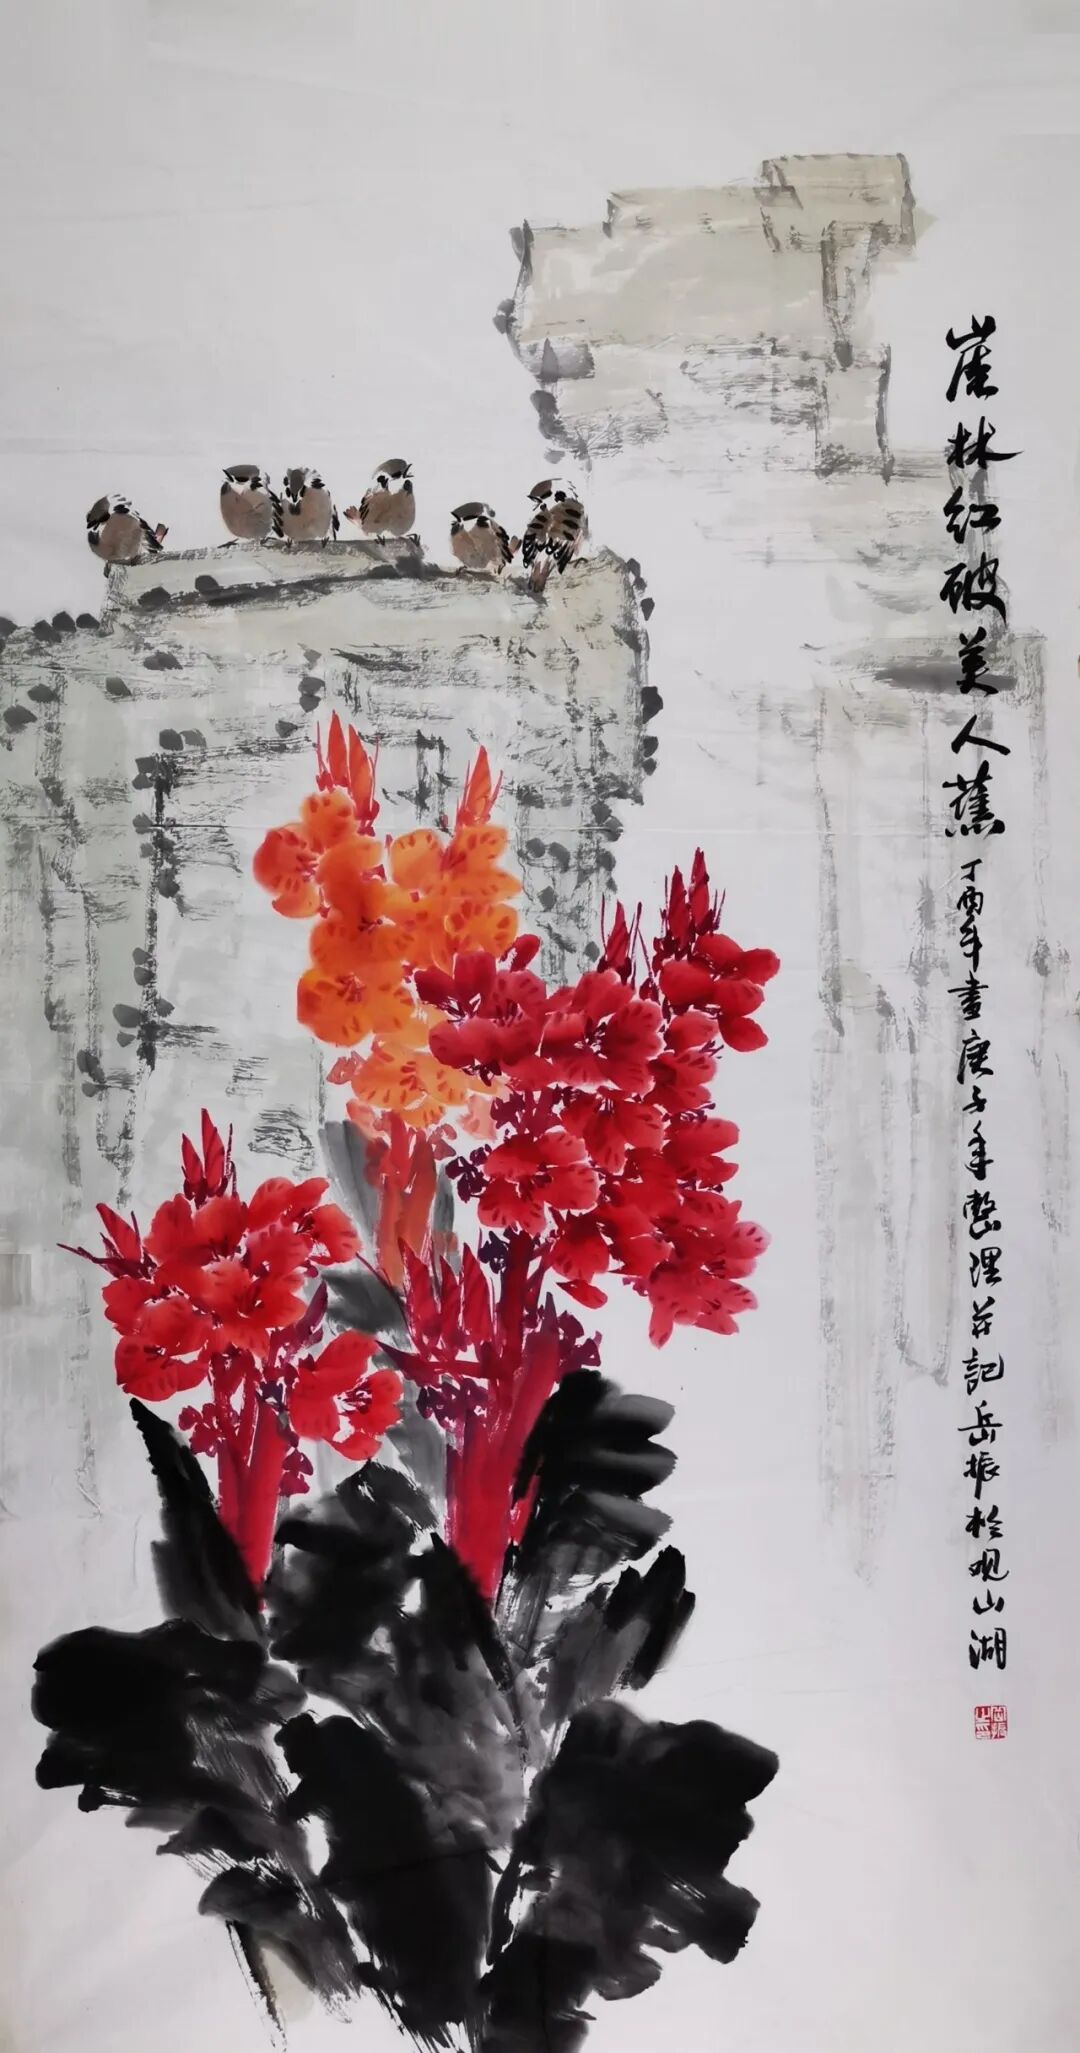 崖林红破美人蕉
丁酉年画庚子年整理并記岳振於观山湖